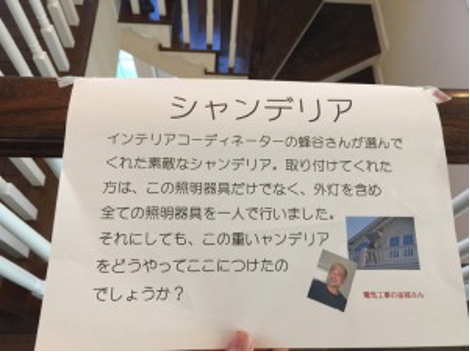 シャンデリア
インテリアコーディネーターの蜂谷さんが選んで
くれた素敵なシャンデリア。取り付けてくれた
方は、この照明器具だけでなく、外灯を含め
全ての照明器具を一人で行いました。
それにしても、この重いャンデリア
をどうやってここにつけたの
でしょうか？
電気工事の さん